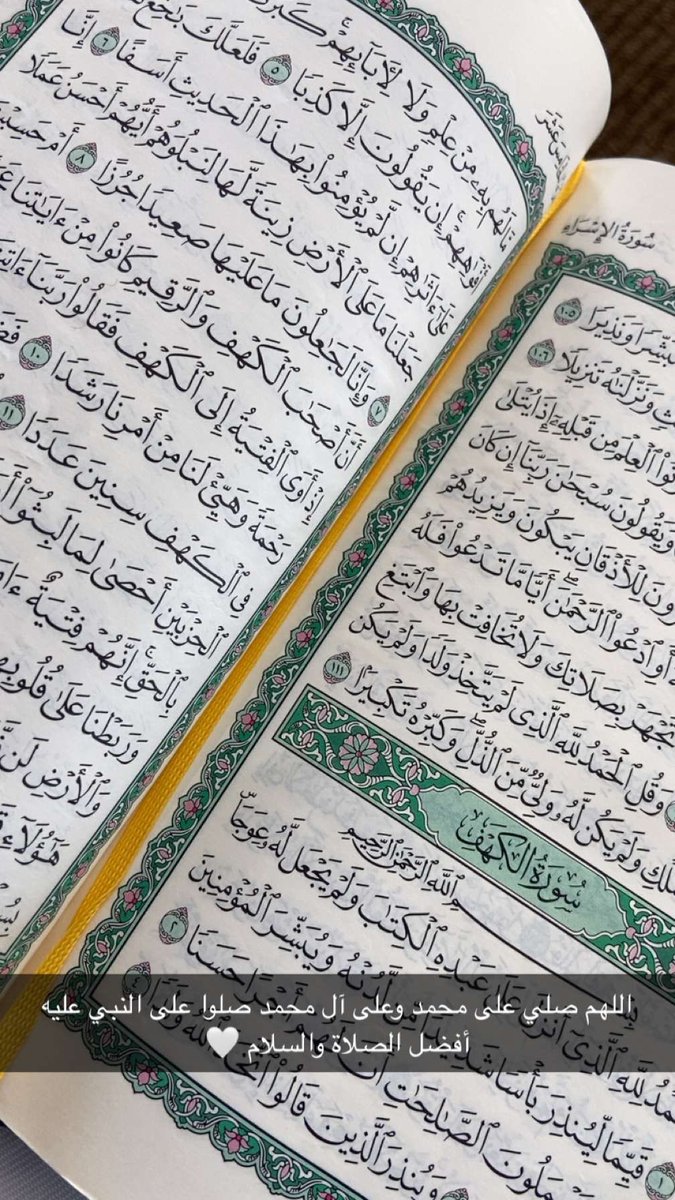 سُورَةُ الإِسْرَاءِ
وَنَذِيرًا ١٠٥
وَنَزَّلْنَٰهُ تَنزِيلًا ١٠٦
ٱلْعِلْمَ مِن قَبْلِهِۦٓ إِذَا يُتْلَىٰ
وَيَقُولُونَ سُبْحَٰنَ رَبِّنَآ إِن كَانَ
لِلْأَذْقَانِ يَبْكُونَ وَيَزِيدُهُمْ
أَوِ ٱدْعُوا۟ ٱلرَّحْمَٰنَ أَيًّا مَّا تَدْعُوا۟ فَلَهُ
تَجْهَرْ بِصَلَاتِكَ وَلَا تُخَافِتْ بِهَا وَٱبْتَغِ
وَقُلِ ٱلْحَمْدُ لِلَّهِ ٱلَّذِى لَمْ يَتَّخِذْ وَلَدًا وَلَمْ يَكُن
وَلَمْ يَكُن لَّهُۥ وَلِىٌّ مِّنَ ٱلذُّلِّ وَكَبِّرْهُ تَكْبِيرًۢا ١١١
سُورَةُ الكَهْفِ
بِسْمِ ٱللَّهِ ٱلرَّحْمَٰنِ ٱلرَّحِيمِ
لِلَّهِ ٱلَّذِىٓ أَنزَلَ عَلَىٰ عَبْدِهِ ٱلْكِتَٰبَ وَلَمْ يَجْعَل لَّهُۥ عِوَجَاۜ ١
قَيِّمًا لِّيُنذِرَ بَأْسًا شَدِيدًا مِّن لَّدُنْهُ وَيُبَشِّرَ ٱلْمُؤْمِنِينَ
ٱلصَّٰلِحَٰتِ أَنَّ لَهُمْ أَجْرًا حَسَنًا ٢
وَيُنذِرَ ٱلَّذِينَ قَالُوا۟ ٱتَّخَذَ ٱللَّهُ وَلَدًا ٤
مَّا لَهُم بِهِۦ مِنْ عِلْمٍ وَلَا لِءَابَآئِهِمْ ۚ كَبُرَتْ
إِن يَقُولُونَ إِلَّا كَذِبًا ٥ فَلَعَلَّكَ بَٰخِعٌ
عَلَىٰٓ ءَاثَٰرِهِمْ إِن لَّمْ يُؤْمِنُوا۟ بِهَٰذَا ٱلْحَدِيثِ أَسَفًا ٦ إِنَّا
جَعَلْنَا مَا عَلَى ٱلْأَرْضِ زِينَةً لَّهَا لِنَبْلُوَهُمْ أَيُّهُمْ أَحْسَنُ عَمَلًا
٧ وَإِنَّا لَجَٰعِلُونَ مَا عَلَيْهَا صَعِيدًا جُرُزًا ٨ أَمْ حَسِبْتَ
أَنَّ أَصْحَٰبَ ٱلْكَهْفِ وَٱلرَّقِيمِ كَانُوا۟ مِنْ ءَايَٰتِنَا
إِذْ أَوَى ٱلْفِتْيَةُ إِلَى ٱلْكَهْفِ فَقَالُوا۟ رَبَّنَآ ءَاتِنَا
رَحْمَةً وَهَيِّئْ لَنَا مِنْ أَمْرِنَا رَشَدًا ١٠
فِى ٱلْكَهْفِ سِنِينَ عَدَدًا ١١
ٱلْحِزْبَيْنِ أَحْصَىٰ لِمَا لَبِثُوٓا۟
بِٱلْحَقِّ ۚ إِنَّهُمْ فِتْيَةٌ
وَرَبَطْنَا عَلَىٰ قُلُوبِهِمْ
وَٱلْأَرْضِ لَن
هَٰٓؤُلَآءِ
اللهم صلي على محمد وعلى آل محمد صلوا على النبي عليه
أفضل الصلاة والسلام 🤍